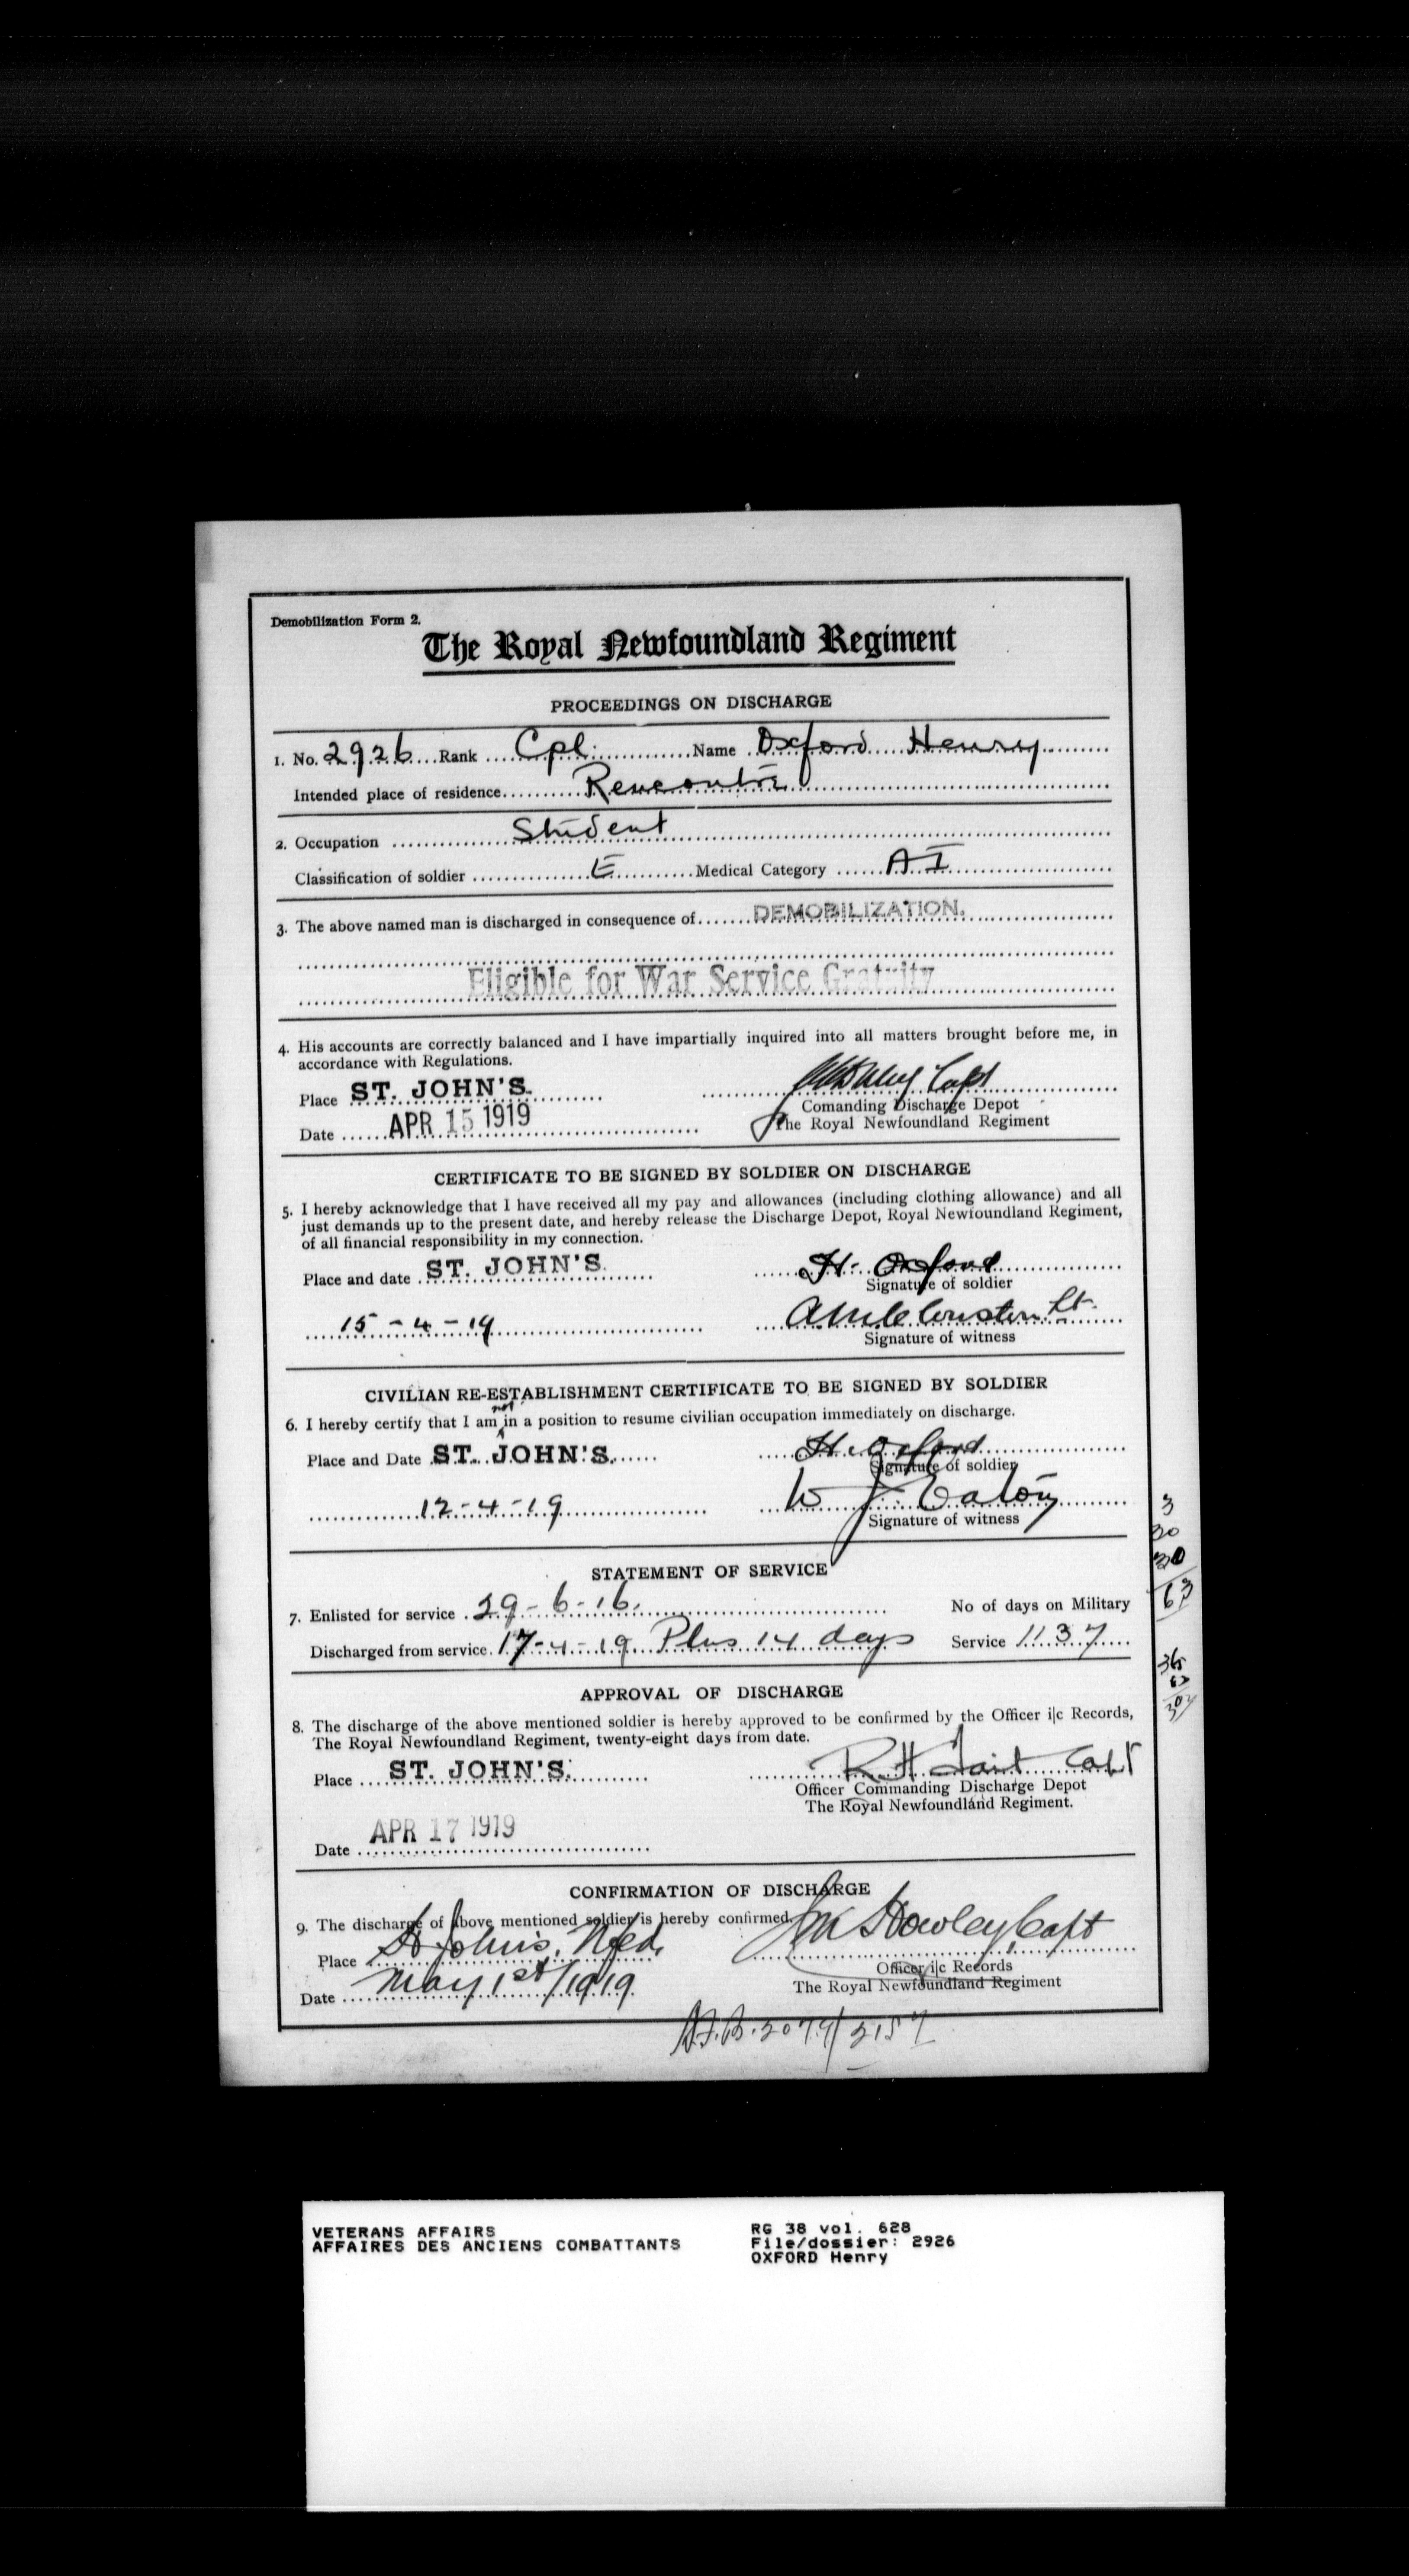 Demobilization Form 2.
The Royal Newfoundland Regiment
PROCEEDINGS ON DISCHARGE
1. No. 2926 Rank Cpl. Name Oxford Henry
Intended place of residence Rencontre
2. Occupation Student
Classification of soldier E Medical Category A I
3. The above named man is discharged in consequence of DEMOBILIZATION.
Eligible for War Service Gratuity
4. His accounts are correctly balanced and I have impartially inquired into all matters brought before me, in
accordance with Regulations.
Place ST. JOHN'S. Capt
Comanding Discharge Depot
Date APR 15 1919 The Royal Newfoundland Regiment
CERTIFICATE TO BE SIGNED BY SOLDIER ON DISCHARGE
5. I hereby acknowledge that I have received all my pay and allowances (including clothing allowance) and all
just demands up to the present date, and hereby release the Discharge Depot, Royal Newfoundland Regiment,
of all financial responsibility in my connection.
Place and date ST. JOHN'S. H. Oxford
Signature of soldier
15-4-19 Lt.
Signature of witness
CIVILIAN RE-ESTABLISHMENT CERTIFICATE TO BE SIGNED BY SOLDIER
6. I hereby certify that I am not in a position to resume civilian occupation immediately on discharge.
Place and Date ST. JOHN'S. H. Oxford
Signature of soldier
12-4-19 W J Eaton
Signature of witness
STATEMENT OF SERVICE
7. Enlisted for service 29-6-16. No of days on Military
Discharged from service 17-4-19 Plus 14 days Service 1137
3
30
30
63
APPROVAL OF DISCHARGE
8. The discharge of the above mentioned soldier is hereby approved to be confirmed by the Officer i|c Records,
The Royal Newfoundland Regiment, twenty-eight days from date.
Place ST. JOHN'S. R H Tait Capt
Officer Commanding Discharge Depot
The Royal Newfoundland Regiment.
Date APR 17 1919
CONFIRMATION OF DISCHARGE
9. The discharge of above mentioned soldier is hereby confirmed
Place St John's, Nfld. Howley Capt
Officer i|c Records
Date May 1st/1919. The Royal Newfoundland Regiment
VETERANS AFFAIRS
AFFAIRES DES ANCIENS COMBATTANTS
RG 38 vol. 628
File/dossier: 2926
OXFORD Henry